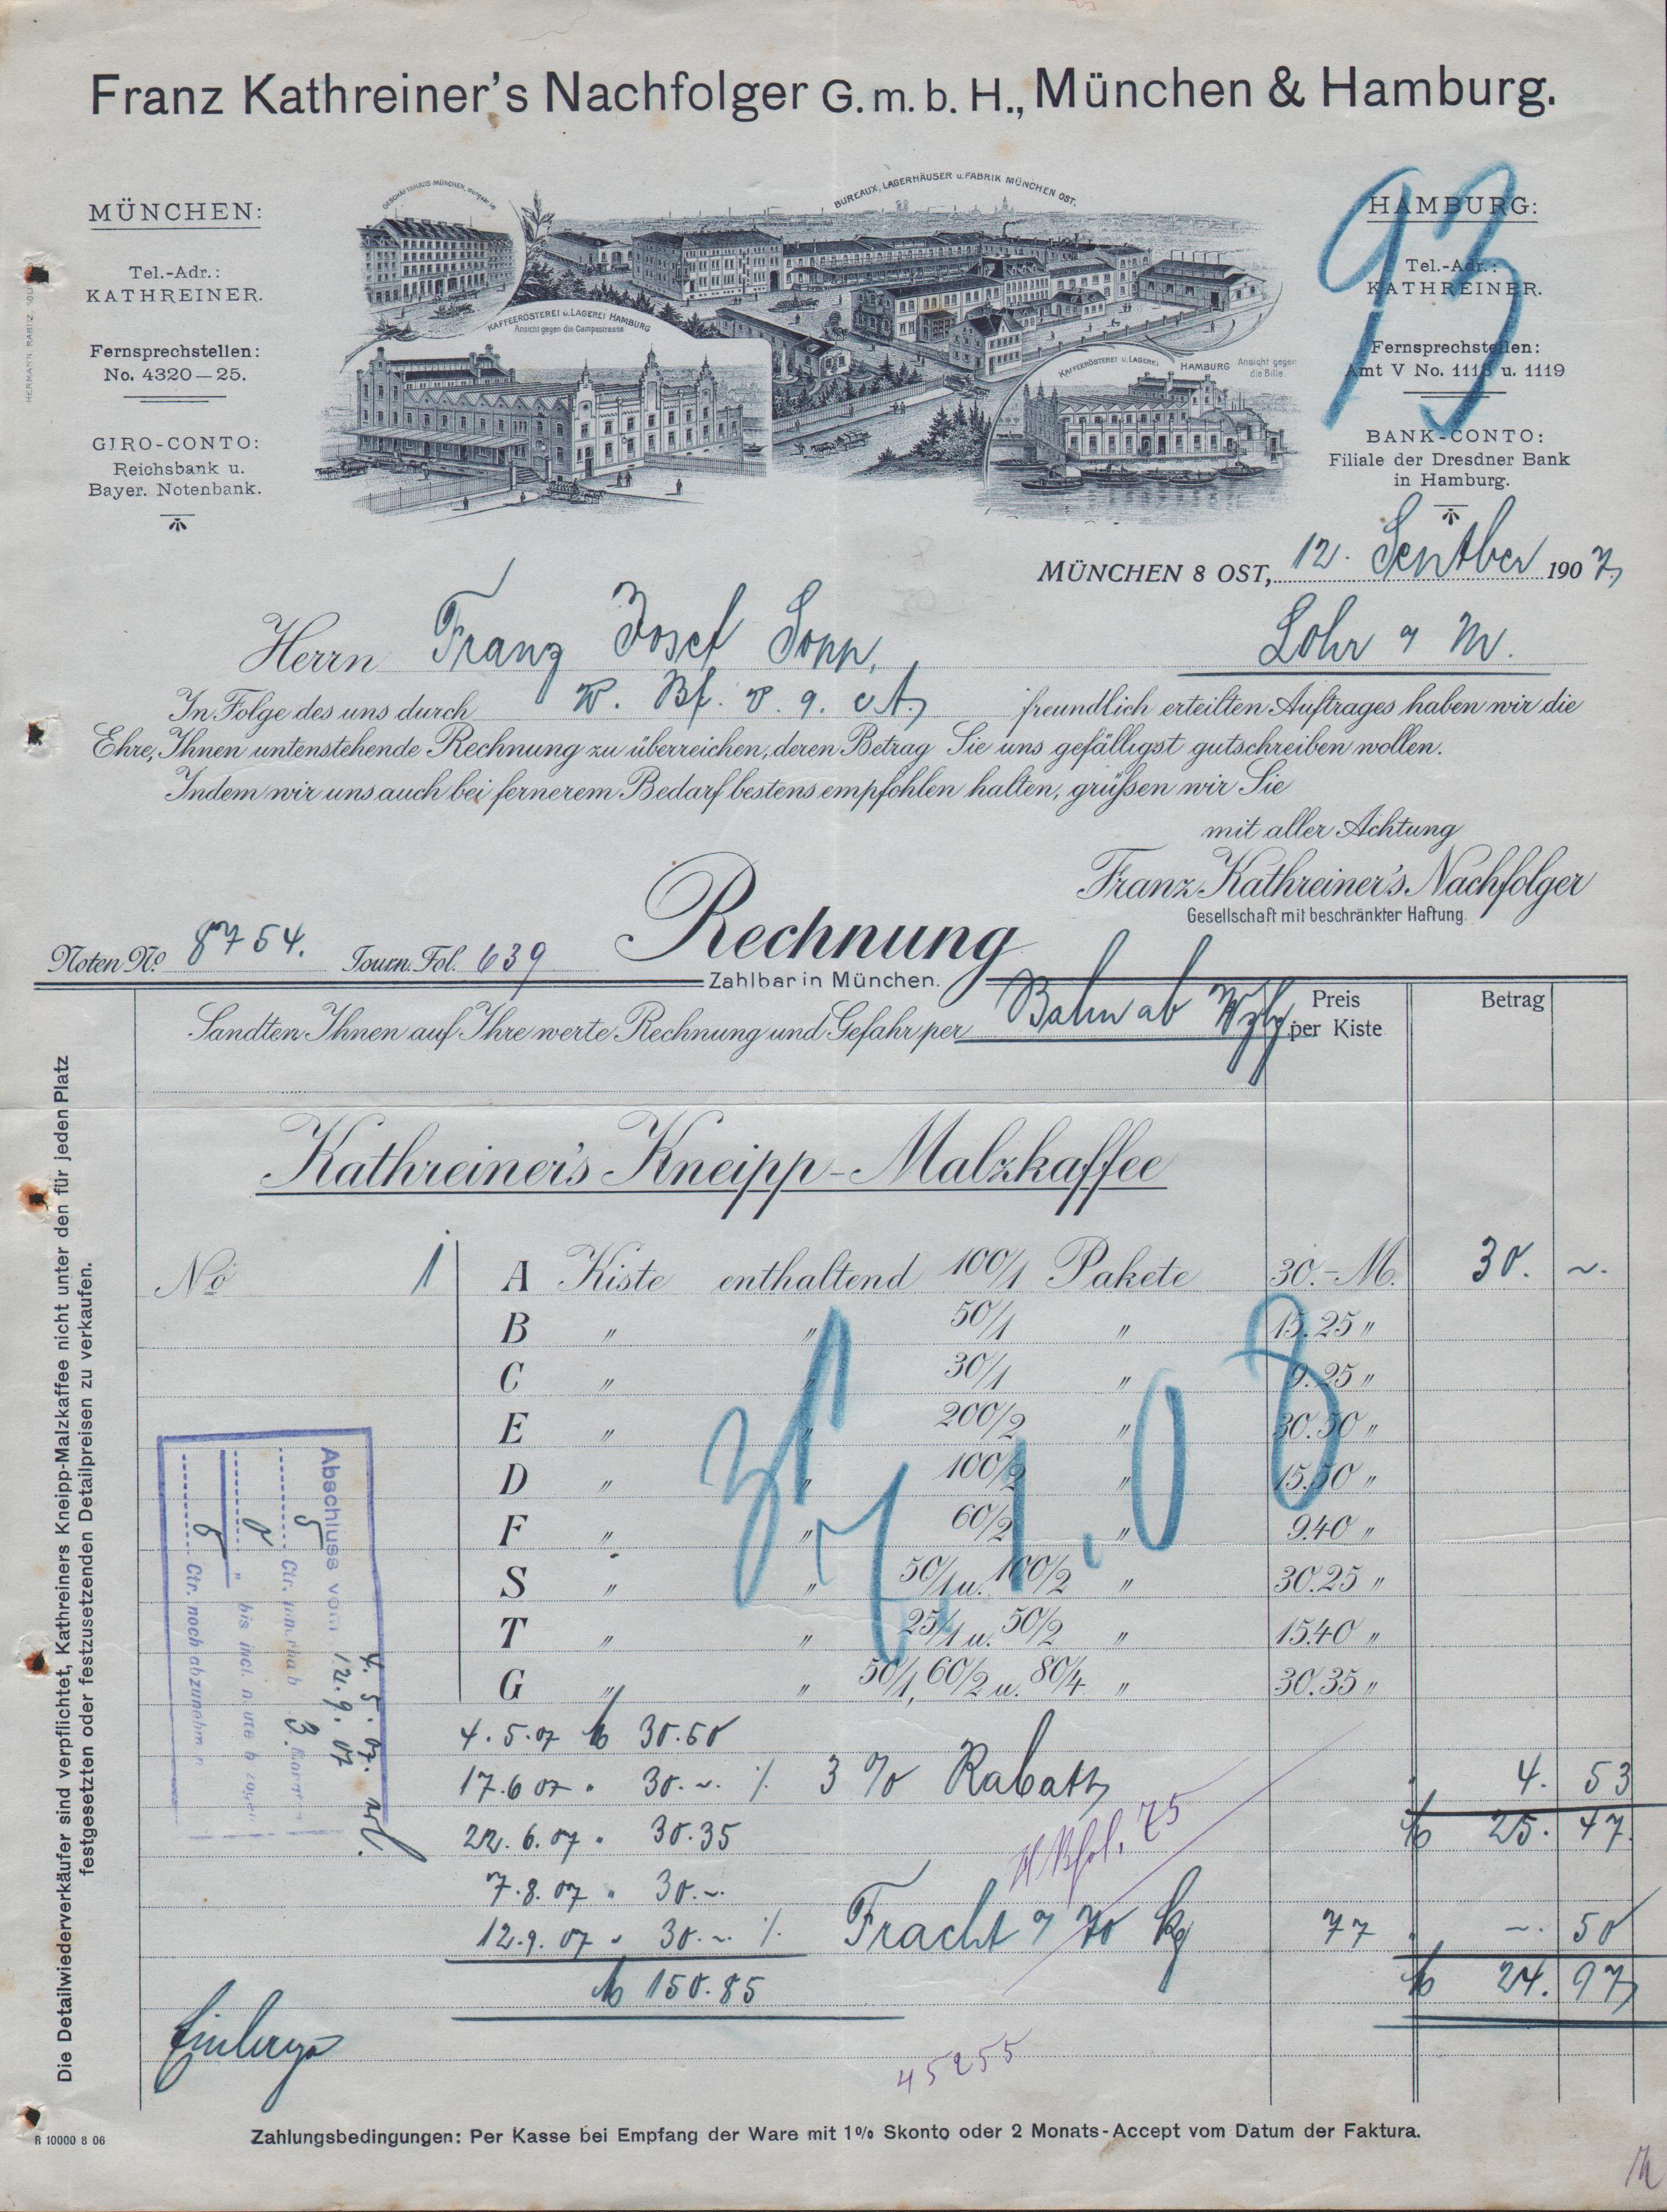 Franz Kathreiner's Nachfolger G. m. b. H., München & Hamburg.
MÜNCHEN:
Tel.-Adr.:
KATHREINER.
Fernsprechstellen:
No. 4320—25.
GIRO-CONTO:
Reichsbank u.
Bayer. Notenbank.
GESCHÄFTSHAUS MÜNCHEN,
BUREAUX, LAGERHÄUSER u. FABRIK MÜNCHEN OST.
KAFFEERÖSTEREI u. LAGEREI HAMBURG
Ansicht gegen die Campestrasse
KAFFEERÖSTEREI u. LAGEREI HAMBURG Ansicht gegen
die Bille.
HAMBURG:
Tel.-Adr.:
KATHREINER.
Fernsprechstellen:
Amt V No. 1118 u. 1119
BANK-CONTO:
Filiale der Dresdner Bank
in Hamburg.
93
HERMANN RABITZ
MÜNCHEN 8 OST, 12. Septber 1907
Herrn Franz Josef Sopp, Lohr a M.
In Folge des uns durch freundlich erteilten Auftrages haben wir die
Ehre, Ihnen untenstehende Rechnung zu überreichen, deren Betrag Sie uns gefälligst gutschreiben wollen.
Indem wir uns auch bei fernerem Bedarf bestens empfohlen halten, grüßen wir Sie
mit aller Achtung
Franz Kathreiner's Nachfolger
Gesellschaft mit beschränkter Haftung.
Noten No. 8754. Journ. Fol. 639
Rechnung
Zahlbar in München.
Sandten Ihnen auf Ihre werte Rechnung und Gefahr per Bahn ab Wzbg
Preis per Kiste
Betrag
Kathreiner's Kneipp-Malzkaffee
No 1 A Kiste enthaltend 100/1 Pakete 30.- M. 30. ~.
B " " 50/1 " 15.25 "
C " " 30/1 " 9.25 "
E " " 200/2 " 30.50 "
D " " 100/2 " 15.50 "
F " " 60/2 " 9.40 "
S " " 50/1 u. 100/2 " 30.25 "
T " " 25/1 u. 50/2 " 15.40 "
G " " 50/1, 60/2 u. 80/4 " 30.35 "
4.5.07 M 30.50
17.6 07 " 30.~. % 3 % Rabatt 4. 53
22.6.07 " 30.35 M 25. 47.
7.8.07 " 30.~.
12.9.07 " 30.~. % Fracht a 70 kg 77 ~. 50
M 150.85 M 24. 97
75
45255
Abschluss vom 4.5.07.
12.9.07
5 Ctr. innerhalb 3
0 " bis incl. heute bezogen
5 Ctr. noch abzunehmen
Die Detailwiederverkäufer sind verpflichtet, Kathreiners Kneipp-Malzkaffee nicht unter den für jeden Platz
festgesetzten oder festzusetzenden Detailpreisen zu verkaufen.
R 10000 8 06
Zahlungsbedingungen: Per Kasse bei Empfang der Ware mit 1% Skonto oder 2 Monats-Accept vom Datum der Faktura.